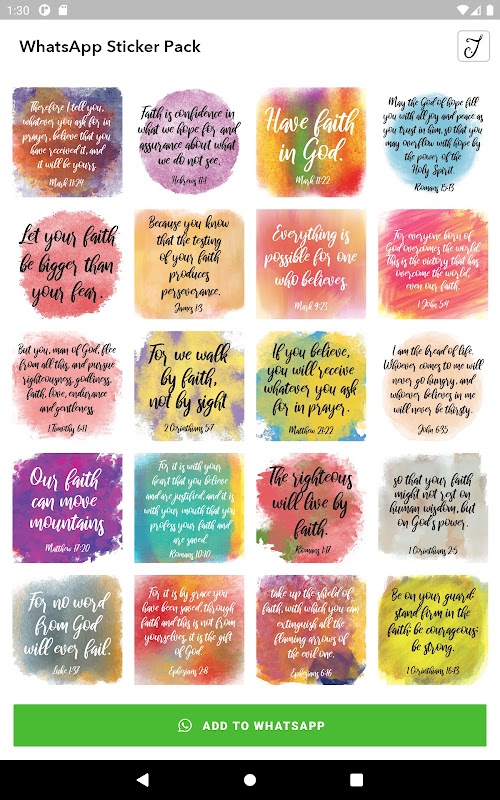 1:30
WhatsApp Sticker Pack
J
Therefore I tell you,
whatever you ask for in
prayer, believe that you
have received it, and
it will be yours.
Mark 11:24
Faith is confidence in
what we hope for and
assurance about what
we do not see.
Hebrews 11:1
Have faith
in God.
Mark 11:22
May the God of hope fill
you with all joy and peace as
you trust in him, so that you
may overflow with hope by
the power of the
Holy Spirit.
Romans 15:13
Let your faith
be bigger than
your fear.
Because you know
that the testing
of your faith
produces
perseverance.
James 1:3
Everything is
possible for one
who believes.
Mark 9:23
For everyone born of
God overcomes the world.
This is the victory that has
overcome the world,
even our faith.
1 John 5:4
But you, man of God, flee
from all this, and pursue
righteousness, godliness,
faith, love, endurance
and gentleness.
1 Timothy 6:11
For we walk
by faith,
not by sight
2 Corinthians 5:7
If you believe,
you will receive
whatever you ask
for in prayer.
Matthew 21:22
I am the bread of life.
Whoever comes to me will
never go hungry, and
whoever believes in me
will never be thirsty.
John 6:35
Our faith
can move
mountains
Matthew 17:20
For it is with your
heart that you believe
and are justified, and it is
with your mouth that you
profess your faith and
are saved.
Romans 10:10
The righteous
will live by
faith.
Romans 1:17
so that your faith
might not rest on
human wisdom, but
on God's power.
1 Corinthians 2:5
For no word
from God
will ever fail.
Luke 1:37
For it is by grace you
have been saved, through
faith and this is not from
yourselves, it is the gift
of God.
Ephesians 2:8
take up the shield of
faith, with which you can
extinguish all the
flaming arrows of
the evil one.
Ephesians 6:16
Be on your guard;
stand firm in the
faith; be courageous;
be strong.
1 Corinthians 16:13
ADD TO WHATSAPP